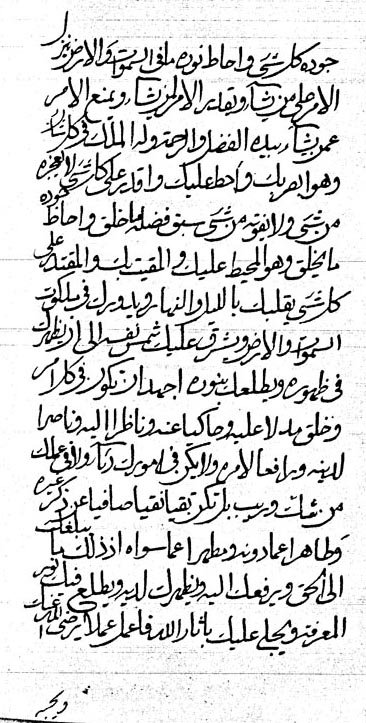 جوده كل شيء واحاط نوره ما في السموات والارض ينزل
الامر على من يشاء ويقدر الامر لمن يشاء ويمنع الامر
عمن يشاء بيده الفضل والرحمة وله الملك في كل شان
وهو اقرب بك واحط عليك واقدر على كل شيء لا يعجزه
من شيء ولا يفوته من شيء سبق فضله ما خلق واحاط جوده
ما يخلق وهو المحيط عليك والمقيت بك والمقتدر على
كل شيء يقلبك بالليل والنهار ويدورك في ملكوت
السموات والارض ويشرق عليك شمس نفسه الى ان يظهرك
في ظهوره ويطلعك بنوره اجهد ان تكون في كل امر
وخلق مدلا عليه وحاكيا عنه وناظرا اليه وناصرا
لدينه ورافعا لامره ولا يكن في امورك ولا في عملك
من شك وريب بل تكن تقيا نقيا صافيا عن ذكر غيره
وطاهرا عما دونه ومطهرا عما سواه اذ ذلك يبلغك
الى الحق ويرفعك اليه ويظهرك لديه ويطلع فيك نور
المعرفة ويجلي عليك باثار الله فاعمل عملا يرضى الله عنك
ويحبه